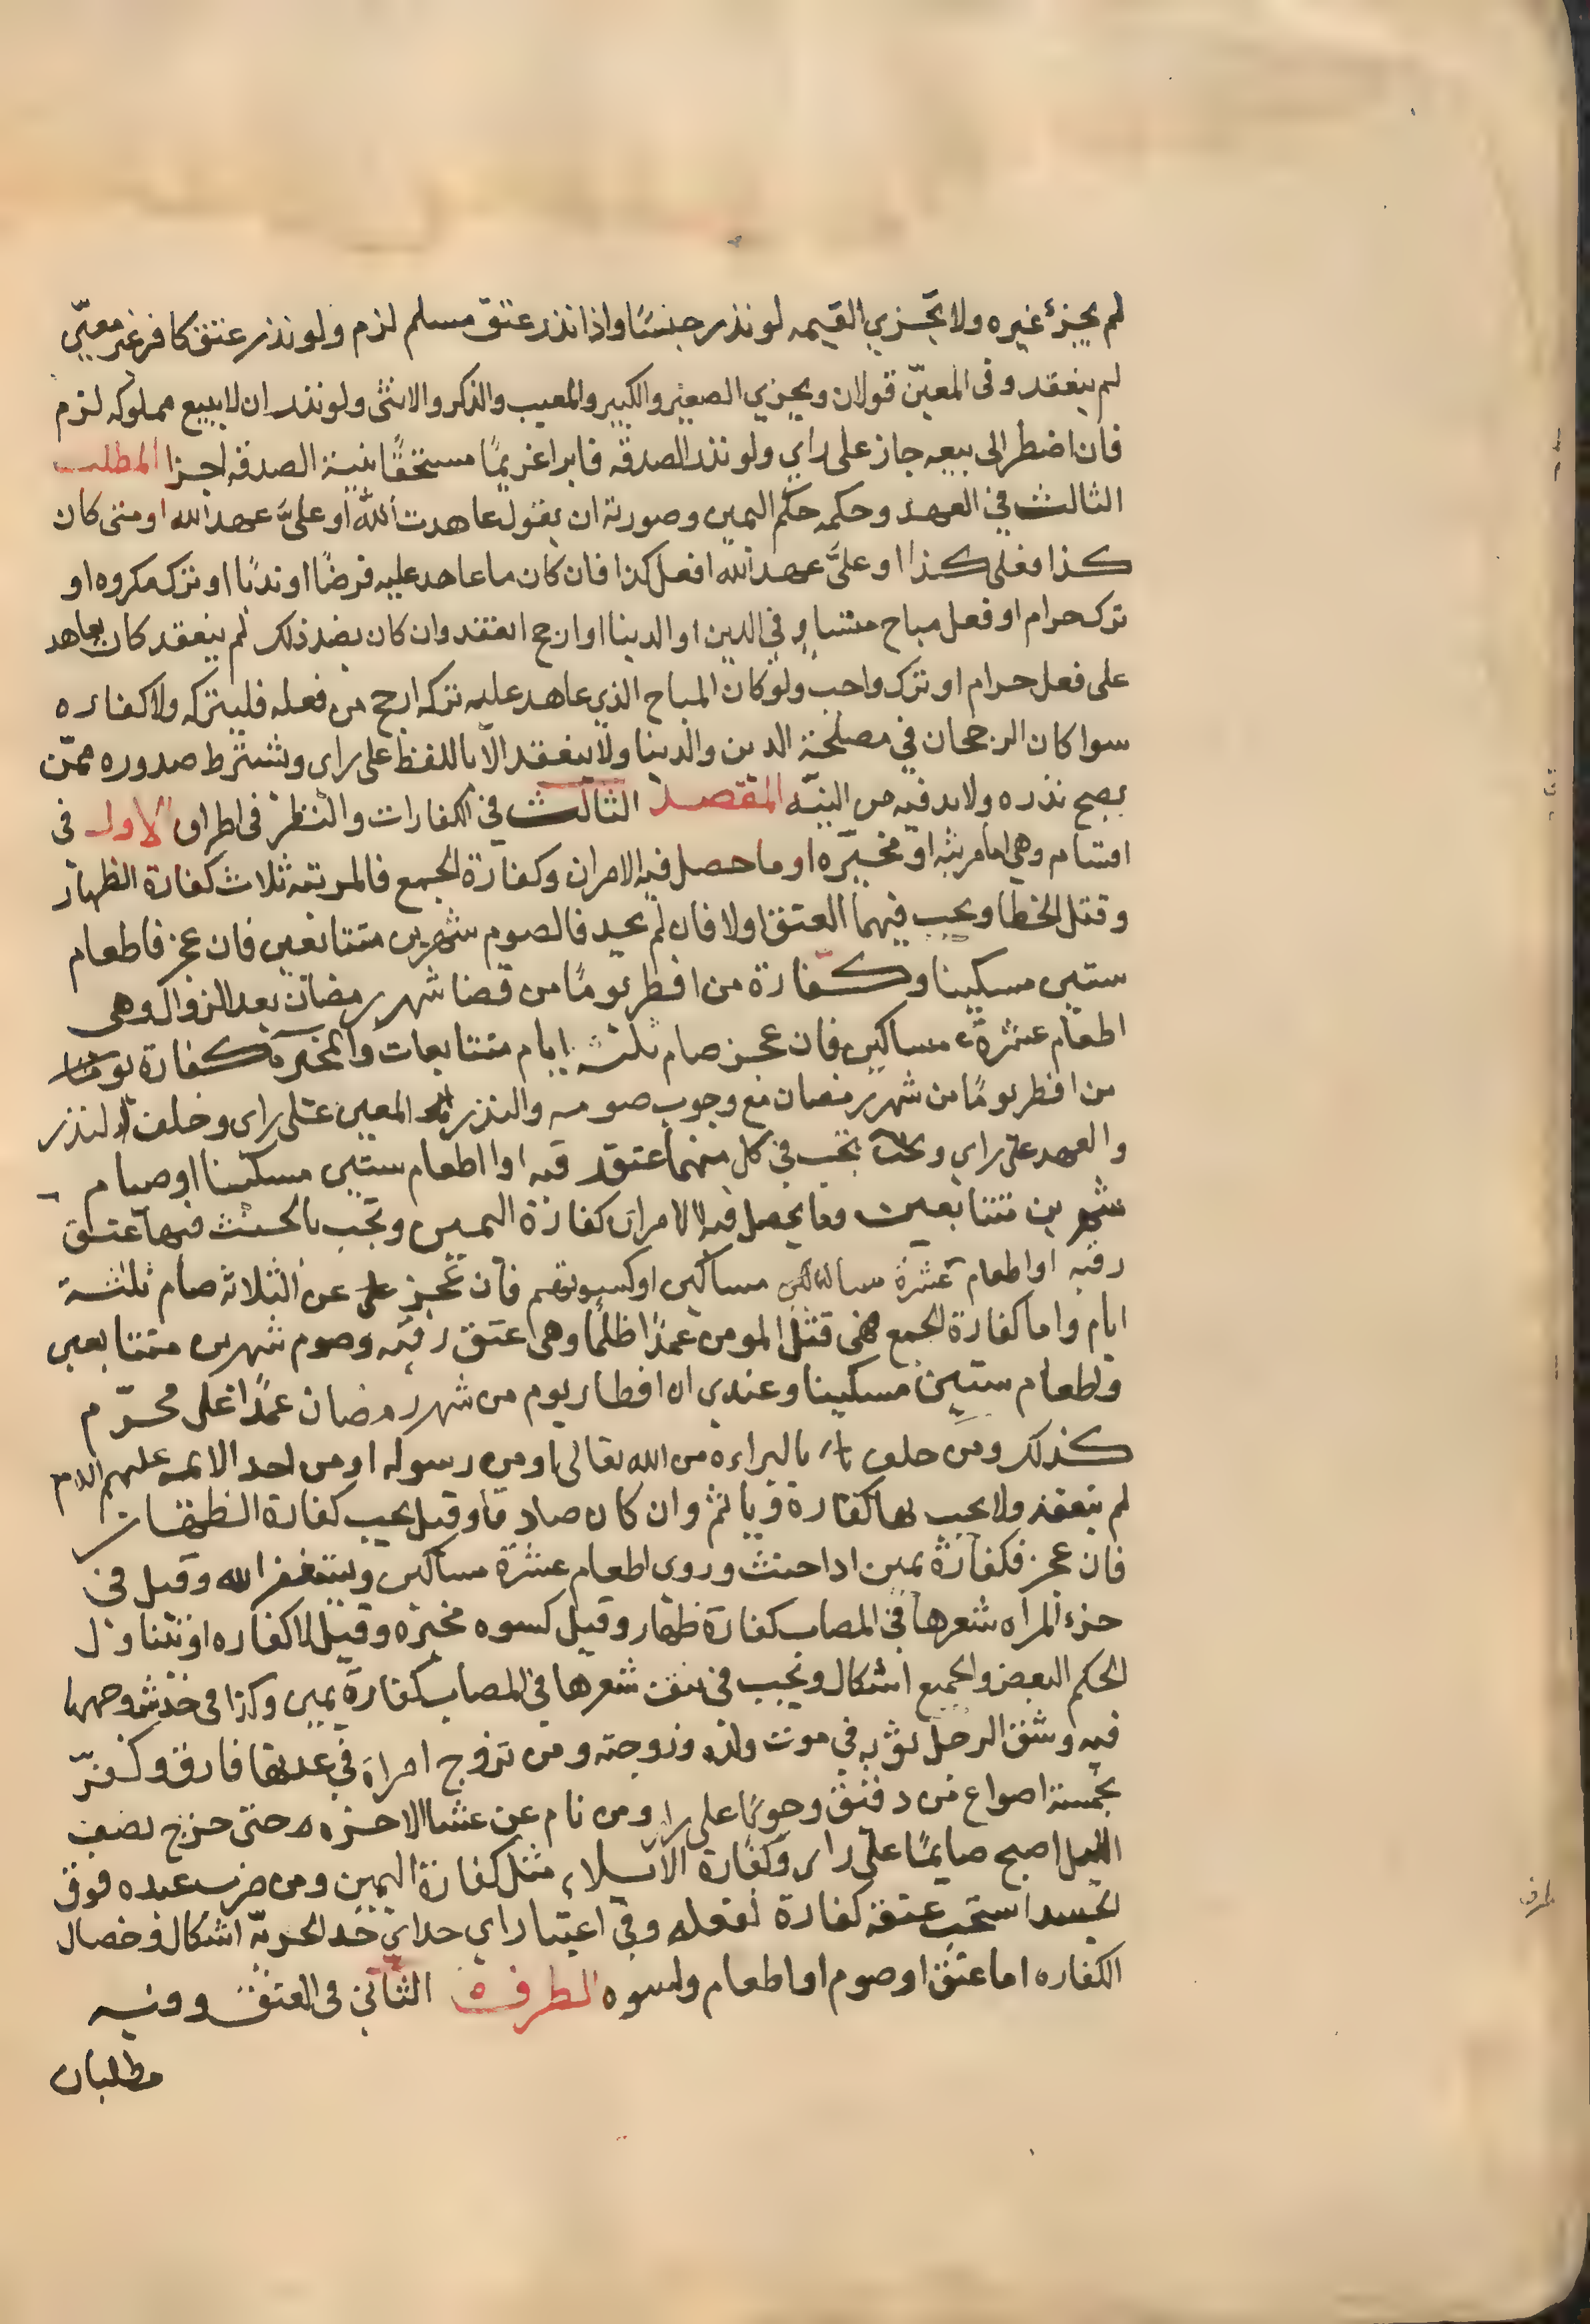 لم يجزئ غيره ولا تجزي القيمه لو نذر جنسًا واذا نذر عتق مسلم لزم ولو نذر عتق كافر غير معيّن
لم ينعقد وفى المعيّن قولان ويجزي الصغير والكبير والمعيب والذكر والانثى ولو نذر ان لا يبيع مملوكه لزم
فان اضطر الى بيعه جاز على راي ولو نذر الصدقه فابرا غريمًا مستحقًا بنية الصدقه اجزا المطلب
الثالث في العهد وحكمه حكم اليمين وصورته ان يقول عاهدت الله او علىَّ عهد الله او متى كان
كذا فعلى كذا او علىَّ عهد الله افعل كذا فان كان ما عاهد عليه فرضًا او ندبًا او ترك مكروه او
ترك حرام او فعل مباح متساوٍ في الدين او الدينا او ارجح انعقد وان كان بضد ذلك لم ينعقد كان يعاهد
على فعل حرام او ترك واجب ولو كان المباح الذي عاهد عليه تركه ارجح من فعله فليتركه ولا كفاره
سوا كان الرجحان في مصلحة الدين والدينا ولا ينعقد الا باللفظ على راى ويشترط صدوره ممّن
يصح نذره ولابد فيه من النيّه المقصد الثالث في الكفارات والنظر فى اطراف الاول فى
اقسام وهي اما مرتبه او مخيّره او ما حصل فيه الامران وكفارة الجمع فالمرتبه ثلاث كفارة الظهار
وقتل الخطا ويجب فيهما العتق اولا فان لم يجد فالصوم شهرين متتابعين فان عجز فاطعام
ستين مسكينا وكفّارة من افطر يومًا من قضا شهر رمضان بعد الزوال وهى
اطعام عشرة مساكين فان عجز صام ثلثة ايام متتابعات والمخيره كفارة يومًا
من افطر يومًا من شهر رمضان مع وجوب صومه والنذر المعين على راى وخلف النذر
والعهد على راي و تجب في كل منهما عتق رقبه او اطعام ستين مسكينا او صيام
شهرين متتابعين وما يحصل فيه الامران كفارة اليمين وتجب بالحنث فيها عتق
رقبه او اطعام عشرة مساكين او كسوتهم فان عجز عن الثلاثه صام ثلثة
ايام واما كفارة الجمع فهى قتل المومن عمدًا ظلمًا وهى عتق رقبه وصوم شهرين متتابعين
واطعام ستين مسكينا وعندي ان افطار يوم من شهر رمضان عمدًا على محرّم
كذلك ومن حلف بالبراءه من الله تعالى او من رسوله او من احد الايمه عليهم السلام
لم ينعقد ولا يجب بها كفارة وياثم وان كان صادقا وقيل يجب كفارة الظهار
فان عجز فكفارة يمين اذا حنث وروى اطعام عشرة مساكين ويستغفر الله وقيل في
جزء المراه شعرها في المصاب كفارة ظهار وقيل كسوه مخيره وقيل لا كفاره او تتناول
الحكم البعض والجميع اشكال وتجب في نتف شعرها في المصاب كفارة يمين وكذا فى خدش وجهها
فيه وشق الرجل ثوبه في موت ولده وزوجته ومن تزوج امراة في عدتها فارق وكفّر
بخمسة اصواع من دقيق وجوبًا على راى ومن نام عن عشا الاخره حتى خرج نصف
الليل اصبح صايمًا على راى وكفارة الايلاء مثل كفارة اليمين ومن ضرب عبده فوق
الحسد استحب عتقه كفارة لفعله وفي اعتبار اي حد اى حد الحريّه اشكال وخصال
الكفاره اما عتق او صوم او اطعام وكسوه الطرف الثاني فى العتق وفيه
مطلبان